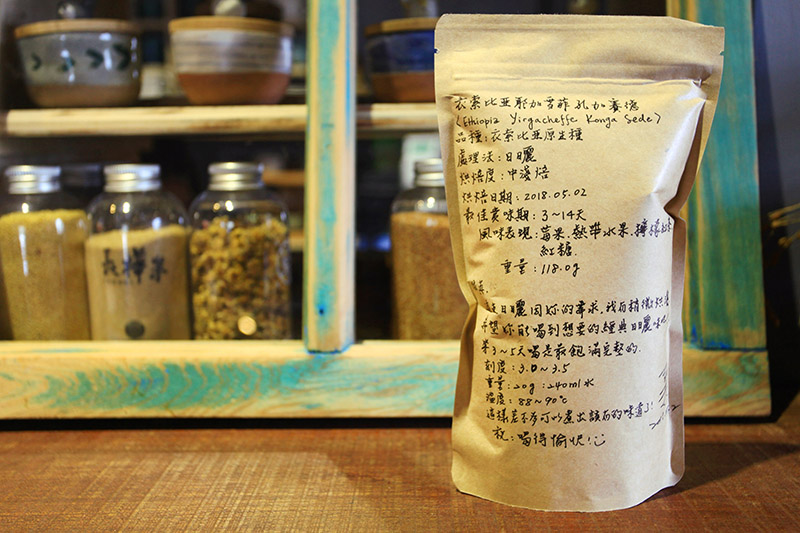 衣索比亞耶加雪菲 孔加賽德
(Ethiopia Yirgacheffe Konga Sede)
品種:衣索比亞原生種
處理法:日曬
烘焙度:中淺焙
烘焙日期:2018.05.02
最佳賞味期:3~14天
風味表現:莓果.熱帶水果.檸檬紅茶
紅糖.
重量:118.0g
日曬因妳的需求,我有稍微
妳能喝到想要的經典日曬味
第3~5天喝是最飽滿完整的.
刻度:3.0~3.5
重量:20g:240ml水
溫度:88~90℃
這樣差不多可以煮出該有的味道了!
祝:喝得愉快!
長樺菓